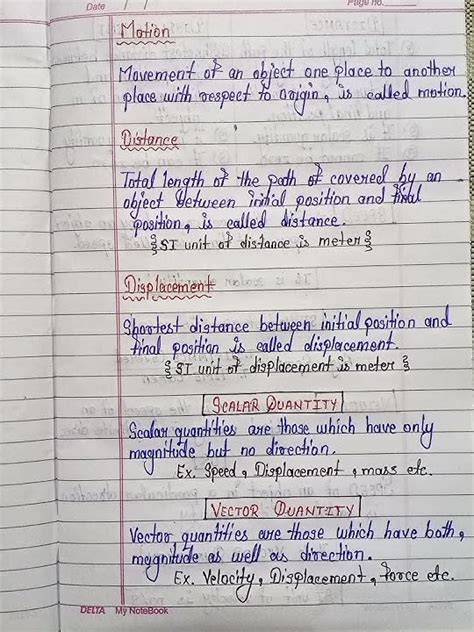 Date / / Page no.
Motion
Movement of an object one place to another
place with respect to origin, is called motion.
Distance
Total length of the path of covered by an
object between initial position and final
position, is called distance.
{SI unit of distance is meter}
Displacement
Shortest distance between initial position and
final position is called displacement.
{SI unit of displacement is meter}
SCALAR QUANTITY
Scalar quantities are those which have only
magnitude but no direction.
Ex. Speed, Displacement, mass etc.
VECTOR QUANTITY
Vector quantities are those which have both,
magnitude as well as direction.
Ex. Velocity, Displacement, force etc.
DELTA My NoteBook